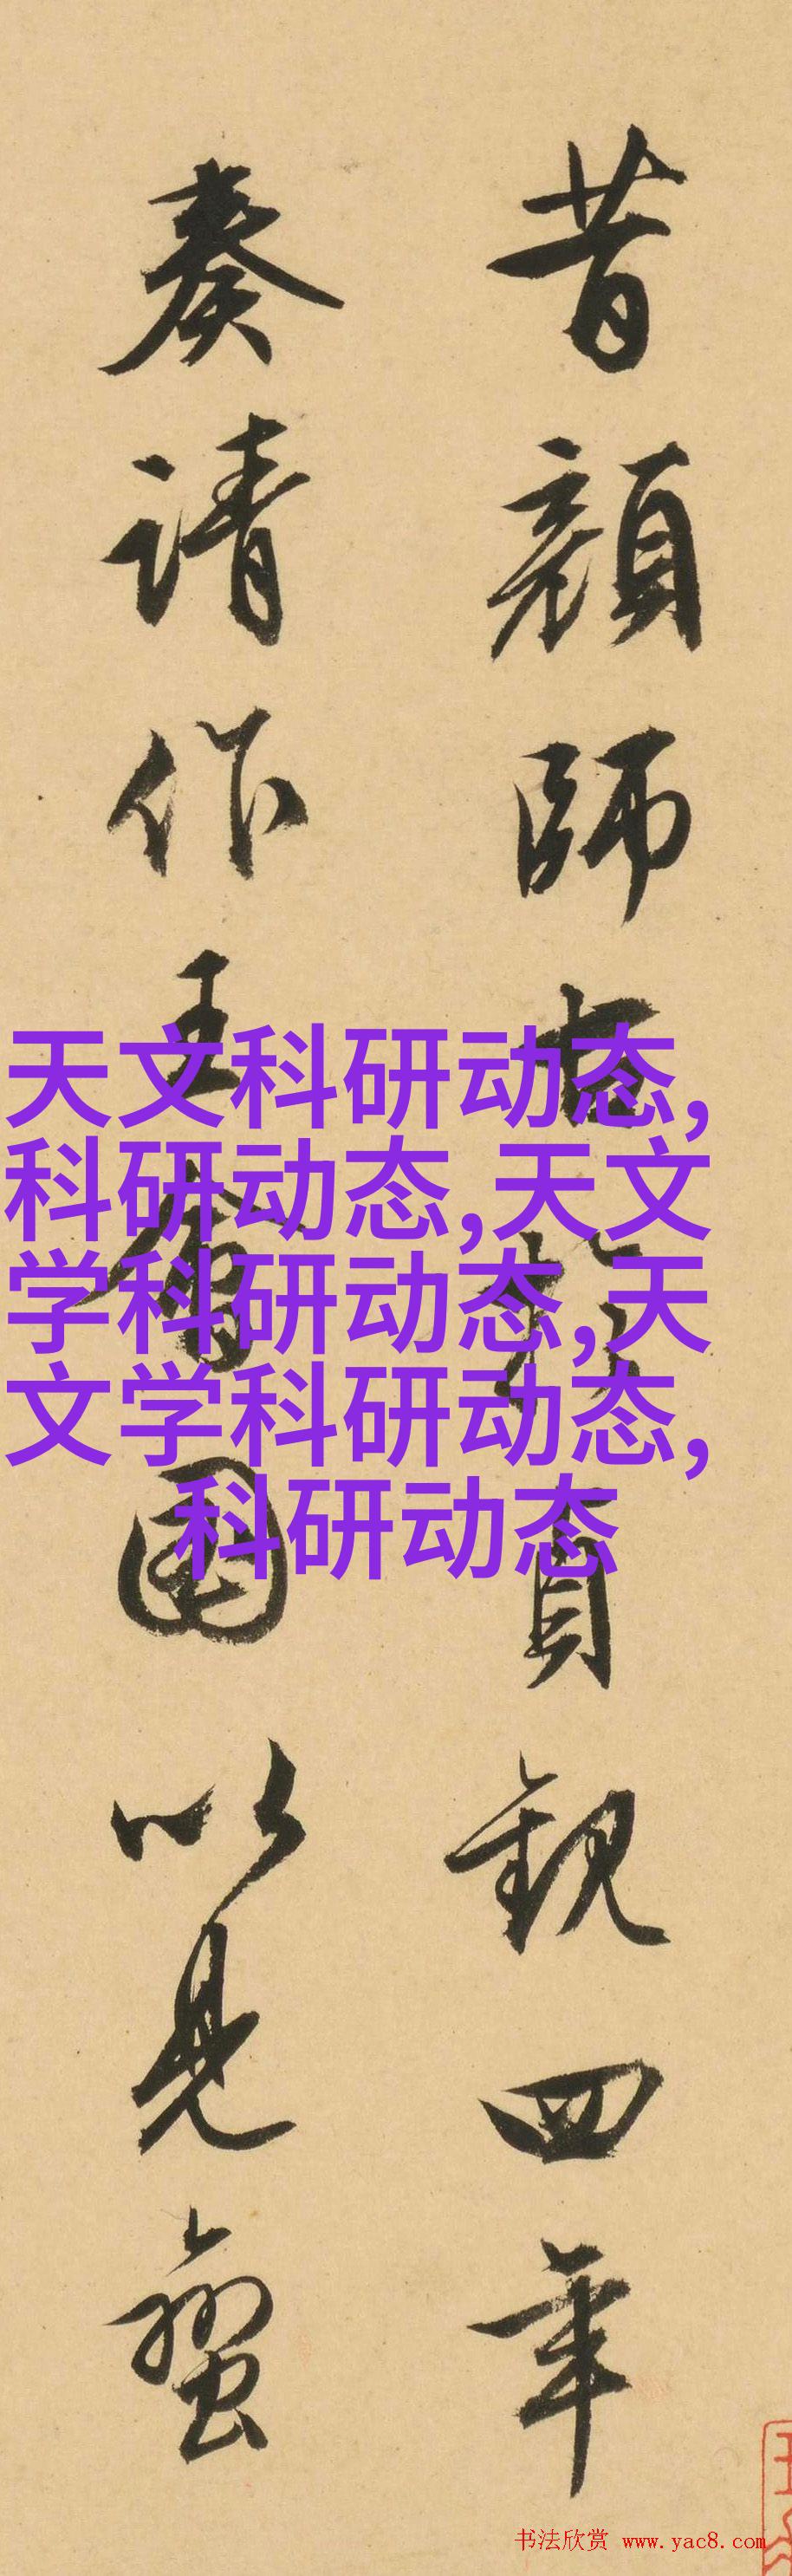 昔顔師古於貞観四年
奏請作王會圖以見蠻
天文科研动态,
科研动态,天文
学科研动态,天
文学科研动态,
科研动态
书法欣赏 www.yac8.com